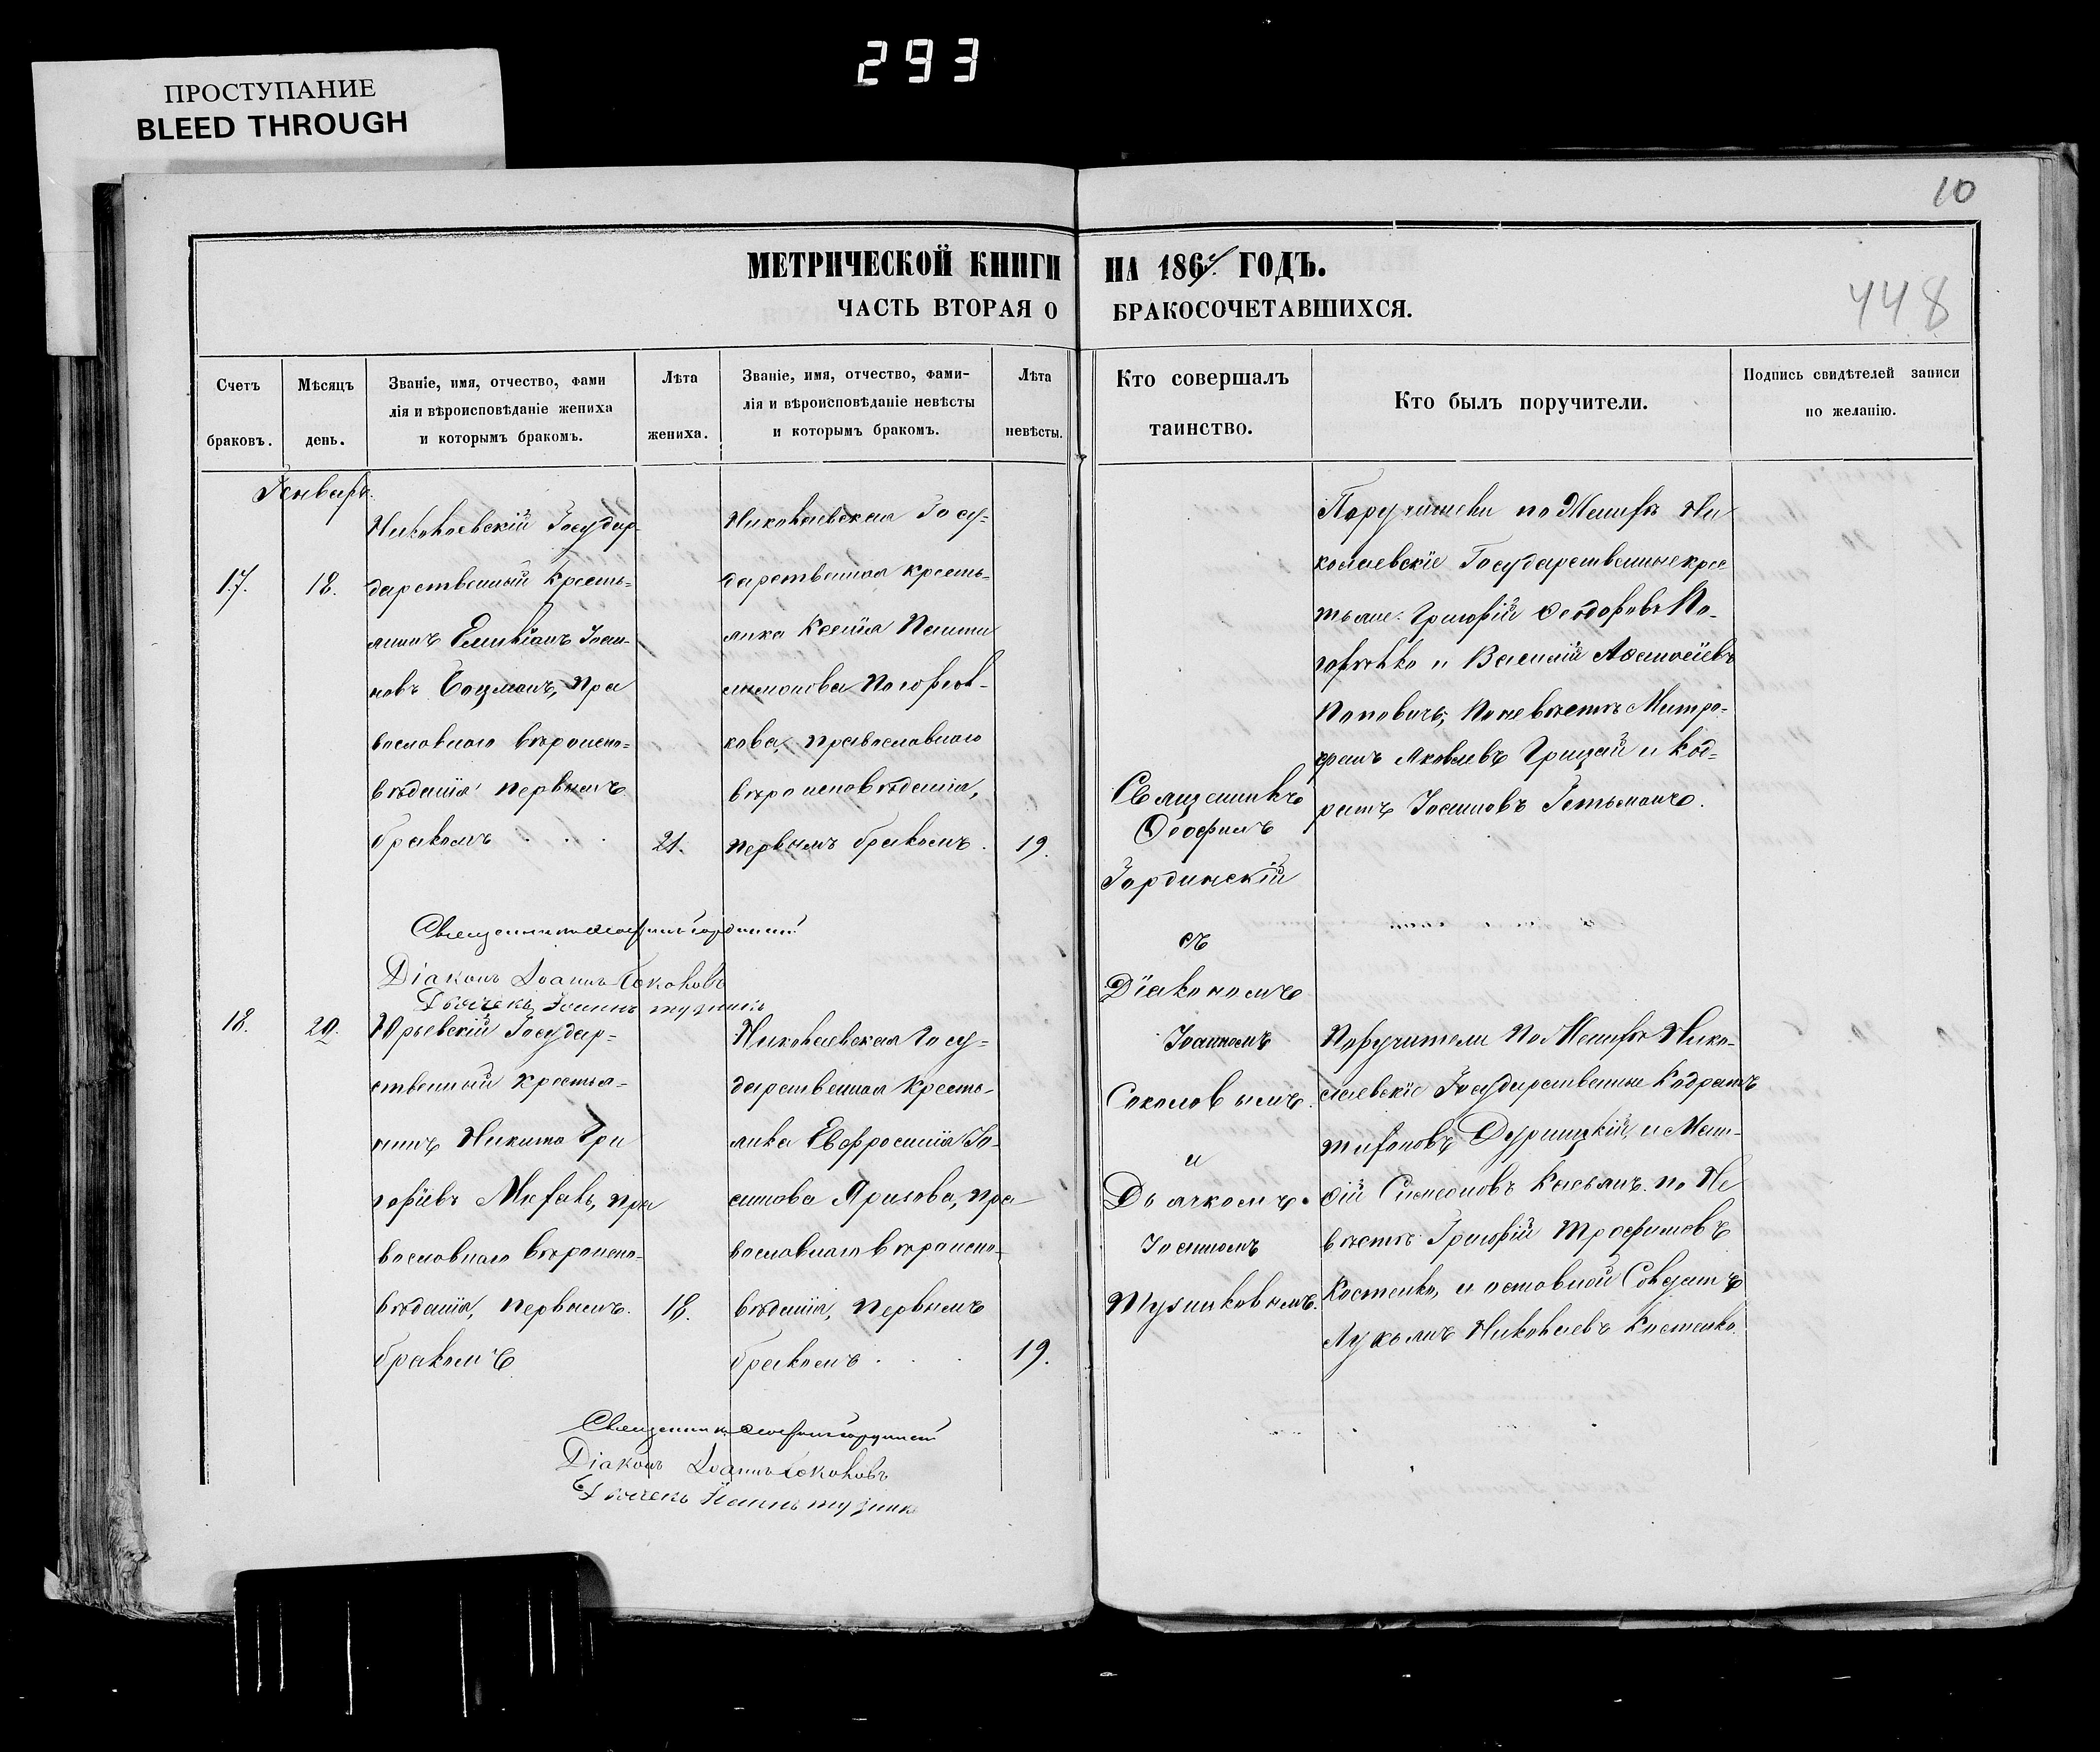 293
ПРОСТУПАНИЕ
BLEED THROUGH
10
МЕТРИЧЕСКОЙ КНИГИ НА 186 ГОДЪ.
ЧАСТЬ ВТОРАЯ О БРАКОСОЧЕТАВШИХСЯ.
448
Счетъ
браковъ.
Мѣсяцъ
день.
Званіе, имя, отчество, фами
лія и вѣроисповѣданіе жениха
и которымъ бракомъ.
Лѣта
жениха.
Званіе, имя, отчество, фами-
лія и вѣроисповѣданіе невѣсты
и которымъ бракомъ.
Лѣта
невѣсты.
Кто совершалъ
таинство.
Кто былъ поручители.
Подпись свидѣтелей записи
по желанію.
Январь.
17.
18.
Николаевскій Государ-
дарственный Кресть-
янинъ Емиліанъ Іоан-
новъ Боцманъ, Пра
вославнаго вѣроиспо-
вѣданія первымъ
бракомъ
21.
Николаевская Госу-
дарственная кресть-
янка Ксенія Панти
лимонова
кова, православнаго
вѣроисповѣданія,
первымъ бракомъ.
19.
Священникъ
Ѳеофилъ
Гординскій
съ
Діакономъ
Іоанномъ
Соколовымъ
и
Дьячкомъ
Іоанномъ
Тузинковымъ.
Поручители по Женихѣ Ни
колаевскіе Государственные крес
тьяне: Григорій Ѳеодоровъ По-
горѣлко и Василій Аѳанасіевъ
Поповичъ, По невѣстѣ Митро-
фанъ Яковлевъ Грицай и Код-
ратъ Іоанновъ Гетьманъ.
Священникъ Ѳеофилъ Гординскій
Діаконъ Іоаннъ Соколовъ
Дьячекъ Іоаннъ
18.
20.
Юрьевскій Государ-
ственный крестья-
нинъ Никита Гри
горіевъ Мюраль, пра
вославнаго вѣроиспо-
вѣданія, первымъ
бракомъ
18.
Николаевская Госу-
дарственная Кресть-
янка Евфросинія Іо-
аннова Яригова, пра
вославнаго вѣроиспо-
вѣданія, первымъ
бракомъ
19.
Поручители По Женихѣ Нико-
лаевскіе Государственные Кодратъ
Дурницкій, и Мат-
ѳій Симеоновъ Касьянъ. по Не
вѣстѣ Григорій Трофимовъ
Костенко, и отставной Солдатъ
Лукьянъ Николаевъ Костенко.
Священникъ Ѳеофилъ Гординскій
Діаконъ Іоаннъ Соколовъ
Дьячекъ Іоаннъ